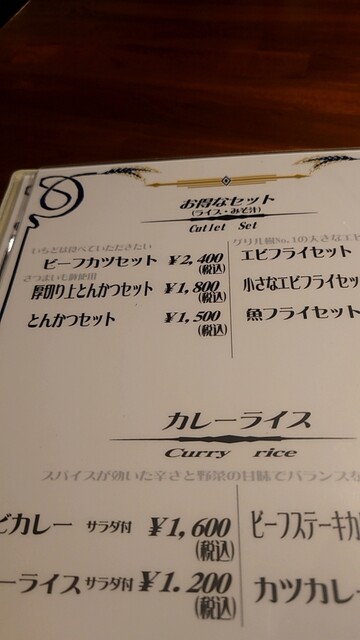 お得なセット
(ライス・みそ汁)
Cutlet Set
いちどは食べていただきたい
ビーフカツセット ¥2,400
(税込)
さつまいも豚使用
厚切り上とんかつセット ¥1,800
(税込)
とんかつセット ¥1,500
(税込)
グリル樹No.1の大きなエビ
エビフライセット
小さなエビフライセッ
魚フライセット
カレーライス
Curry rice
スパイスが効いた辛さと野菜の甘味でバランスを
ビカレー サラダ付 ¥1,600
(税込)
ーライス サラダ付 ¥1.200
(税込)
ビーフステーキカ
カツカレー